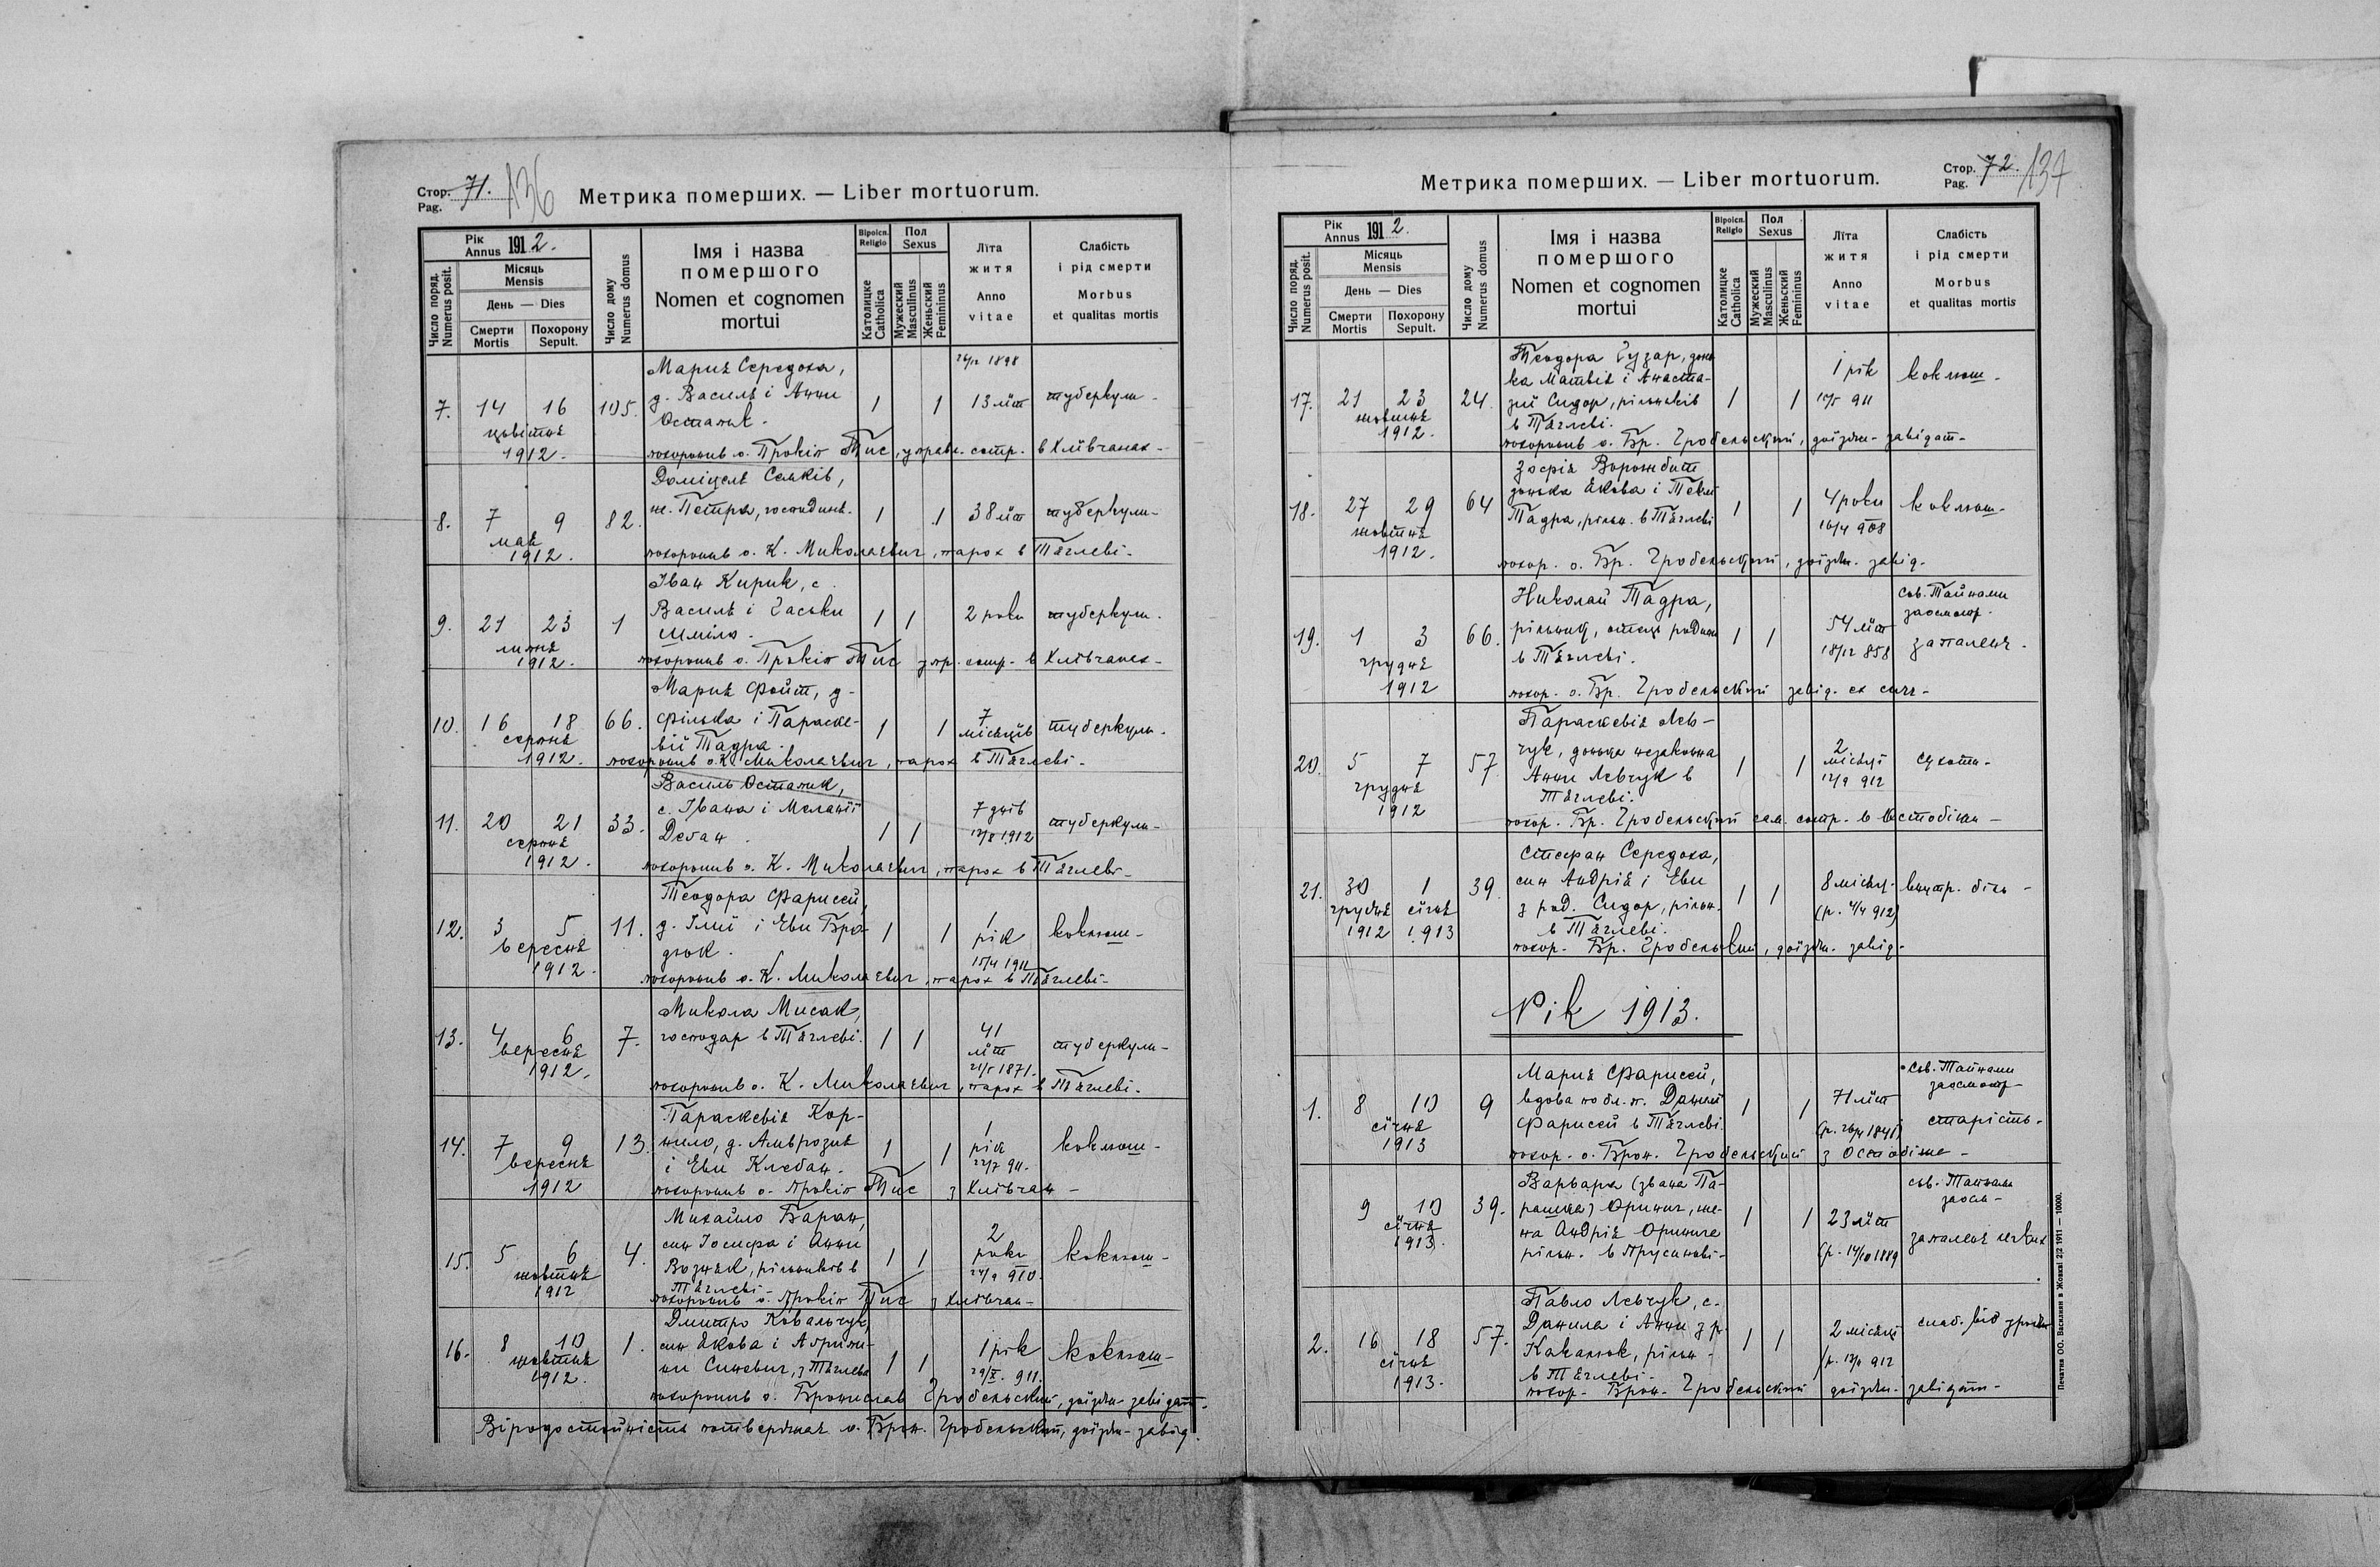 Стор. 71. 136
Pag.
Метрика померших. — Liber mortuorum.
Рік
Annus 1912.
Місяць
Mensis
День — Dies
Число поряд.
Numerus posit.
Смерти
Mortis
Похорону
Sepult.
Число дому
Numerus domus
Імя і назва
помершого
Nomen et cognomen
mortui
Віроісп.
Religio
Католицке
Catholica
Пол
Sexus
Мужеский
Masculinus
Женьский
Femininus
Літа
житя
Anno
vitae
Слабість
і рід смерти
Morbus
et qualitas mortis
Мария Середоха, 26/12 1898
7. 14 16 105. д. Василя і Анни 1 1 13 літ туберкул-
цьвітня Остапяк.
1912. похоронив о. Прокіп Тис, управ. сотр. в Хлівчанах-
Доміцеля Сеньків,
8. 7 9 82. ж. Петра, господиня. 1 1 38 літ туберкули-
мая
1912. похоронив о. К. Миколаевич, парох в Тяглеві-
Іван Кирик, с.
9. 21 23 1 Василя і Гаськи 1 1 2 роки туберкули.
липня Шміло.
1912. похоронив о. Прокіп Тис упр. сотр. в Хлівчанах-
Мария Фойт, д-
10. 16 18 66. Філька і Параске- 1 1 7 місяців туберкули.
серпня вії Тадра.
1912. похоронив о. К. Миколаевич, парох в Тяглеві-
Василь Остапяк,
11. 20 21 33. с. Івана і Меланії 7 днів туберкули-
серпня Дебан. 1 1 12/8 1912
1912. похоронив о. К. Миколаевич, парох в Тяглеві-
Теодора Фарисей,
12. 3 5 11. д. Ілії і Еви Бра- 1 1 1 рік коклюш-
вересня дюк.
1912. 15/4 1911
похоронив о. К. Миколаевич, парох в Тяглеві-
Микола Мисак,
13. 4 6 7. господар в Тяглеві. 1 1 41 літ туберкули-
вересня
1912. 21/5 1871.
похоронив о. К. Миколаевич, парох в Тяглеві-
Параскевія Кор-
14. 7 9 13. нило, д. Амврозия 1 1 1 рік коклюш-
вересня і Еви Клебан. 22/7 911.
1912 похоронив о. Прокіп Тис з Хлівчан-
Михайло Баран,
син Йосифа і Анни 2 роки
15. 5 6 4. Возняк, рільників в 1 1 коклюш-
жовтня Тяглеві- 24/9 910.
1912 похоронив о. Прокіп Тис з Хлівчан-
Дмитро Ковальчук,
16. 8 10 1. син Якова і 1 1 1 рік коклюш-
жовтня ни Синевич, з Тяглева 29/X. 911.
1912. похоронив о. Бронислав Гробельский, доїзж. завідат-
Віродостойність потверджає о. Брон. Гробельский, доїзж- завід.
Стор. 72. 137
Pag.
Метрика померших. — Liber mortuorum.
Рік
Annus 1912.
Місяць
Mensis
День — Dies
Число поряд.
Numerus posit.
Смерти
Mortis
Похорону
Sepult.
Число дому
Numerus domus
Імя і назва
помершого
Nomen et cognomen
mortui
Віроісп.
Religio
Католицке
Catholica
Пол
Sexus
Мужеский
Masculinus
Женьский
Femininus
Літа
житя
Anno
vitae
Слабість
і рід смерти
Morbus
et qualitas mortis
Теодора Гузар, донь-
ка Матвія і Анаста- 1 рік коклюш-
17. 21 23 24. зиї Сидор, рільників 1 1 911
жовтня в Тяглеві.
1912. похоронив о. Бр. Гробельский, доїзж- завідат-
Зофія Ворожбит
18. 27 29 64 донька Якова і Теклі 1 1 4 роки коклюш-
жовтня Тадра, рільн. в Тяглеві 16/4 908
1912. похор. о. Бр. Гробельский, доїзж. завід-
Николай Тадра, Сьв. Тайнами
заосмотр-
19. 1 3 66. рільник, отець родини 1 1 54 літ запалене-
грудня в Тяглеві. 18/12 858
1912 похор. о. Бр. Гробельский завід. ex curr-
Параскевія Лев-
20. 5 7 57. чук, донька незаконна 1 1 2 місяці сухоти-
грудня Анни Левчук в 12/9 912
1912 Тяглеві.
похор. Бр. Гробельский сам. сотр. в Остобіжи-
Стефан Середоха,
21. 30 1 39. син Андрія і Еви 1 1 8 місяц. внутр. біль-
грудня січня з род. Сидор, рільн. (р. 4/4 912)
1912 1913 в Тяглеві.
похор. Бр. Гробельский, доїзж. завід-
Рік 1913.
Мария Фарисей, Сьв. Тайнами
заосмотр-
1. 8 10 9 вдова по бл. п. Даниїлі 1 1 71 літ старість-
січня Фарисей в Тяглеві. (р. 26/4 1841)
1913 похор. о. Брон. Гробельский з Остобіже-
Варвара (звана Па- сьв. Тайнами
заосм-
9 10 39. рашка) Оринич, же- 1 1 23 літ
січня на Андрія Оринича запалене легких
1913. рільн. в Прусинові- (р. 14/10 1889
Павло Левчук, с.
2. 16 18 57. Данила і Анни з р. 1 1 2 місяці слаб. від уродж
січня рільн- (р. 912
1913. в Тяглеві-
похор- Брон- Гробельский доїзж- завідат-
Печатня ОО. Василиян в Жовкві 2|2 1911 — 10000.